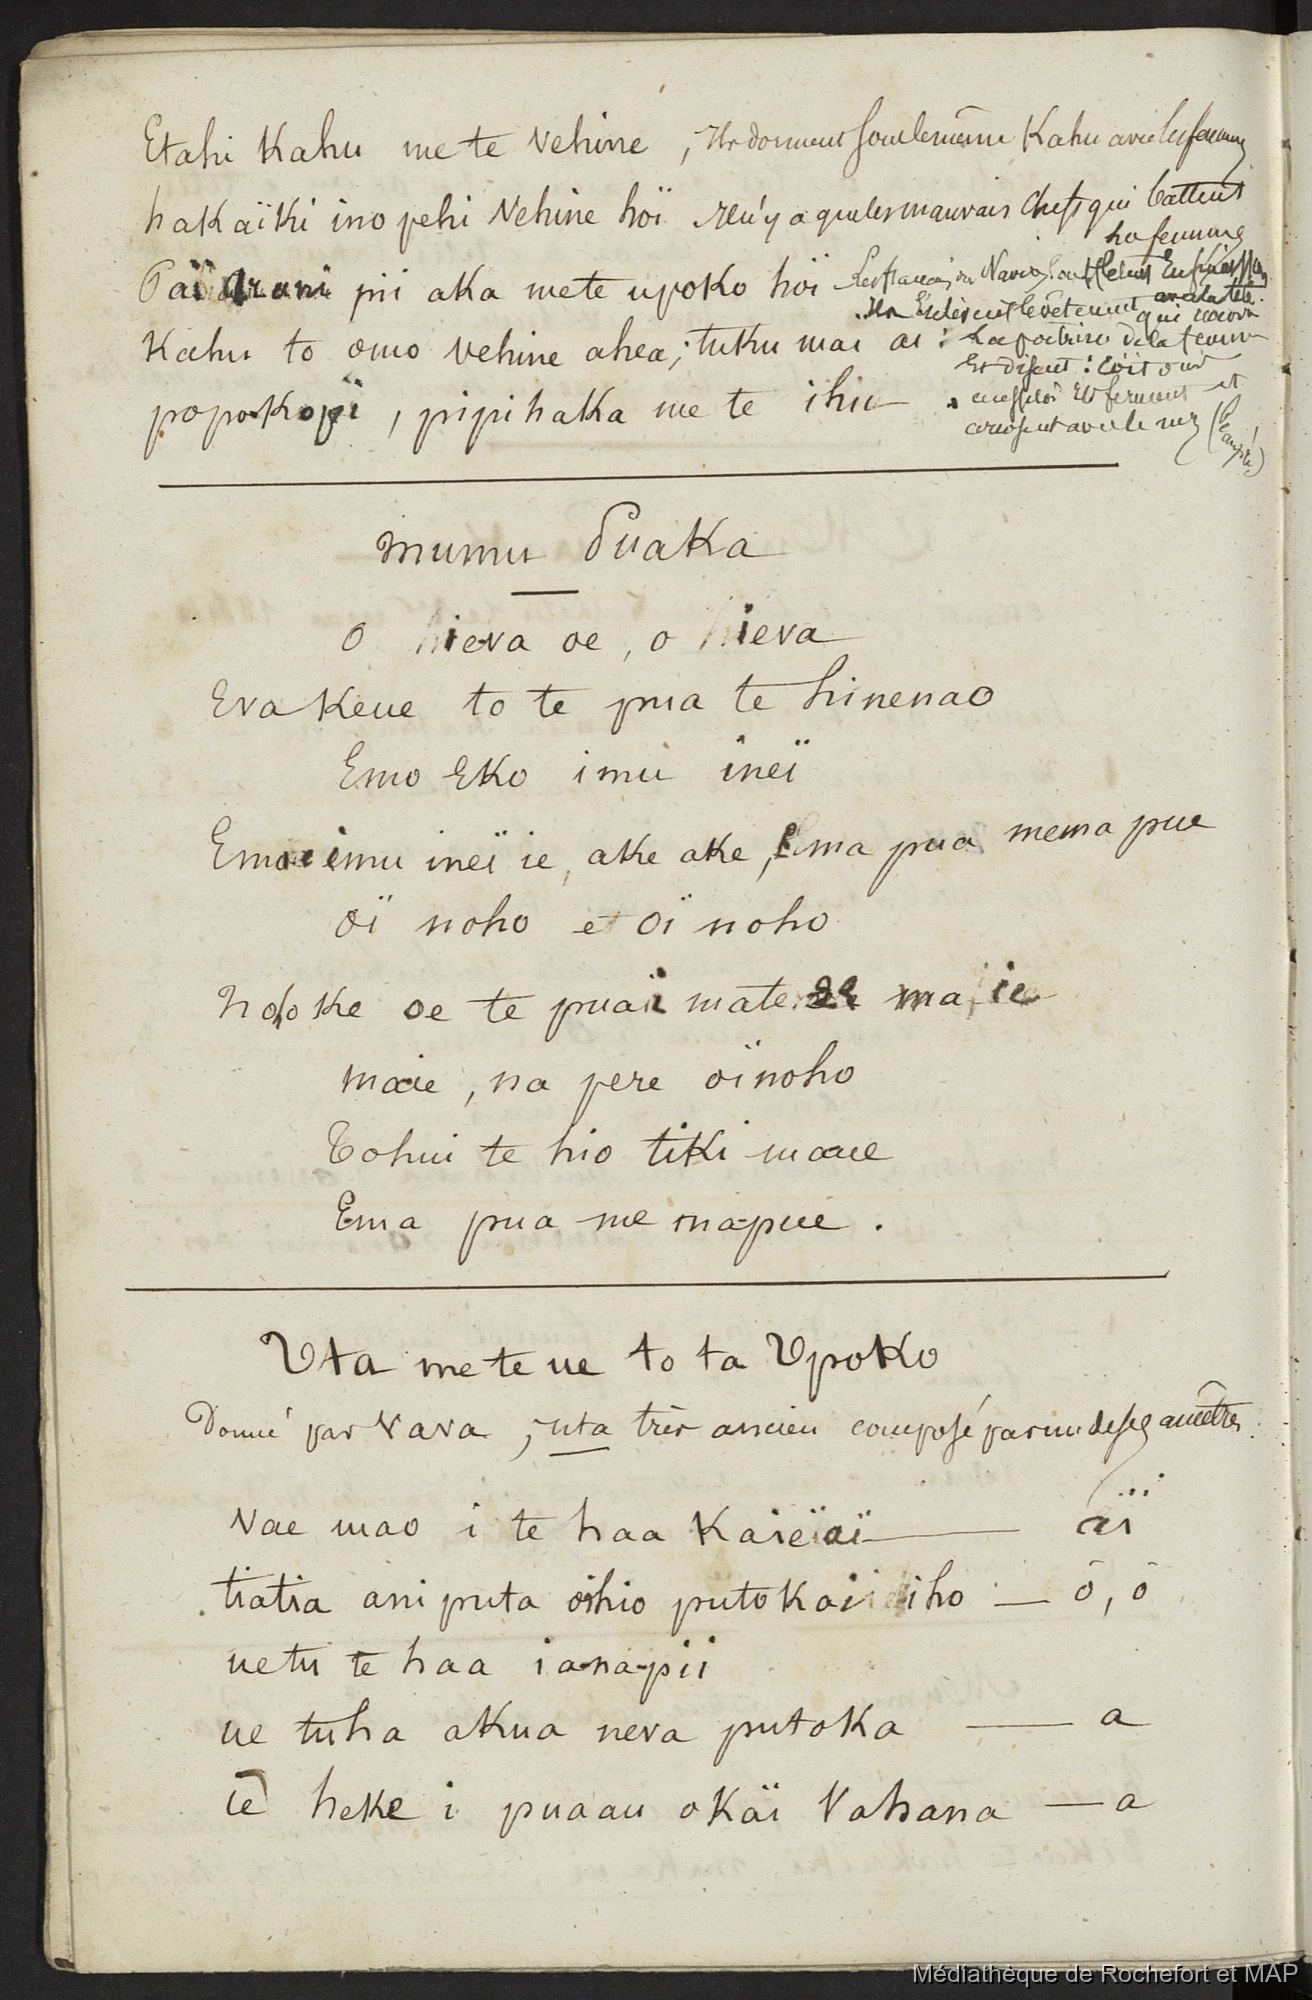 Etahi Kahu me te Vehine , Ils dorment sous le même Kahu avec les femmes
hakaïki ino pehi Vehine hoï Il n'y a que les mauvais chefs qui battent
les femmes
Païarani pii aka mete upoko hoï
avec la tête.
Ils enlèvent le vêtement qui couvre
Kahu to omo vehine ahea; tuku mai ai : La poitrine de la femme
Et disent :
popokopi , pipihaka me te ihu
et ferment et
avec le nez
Mumu Puaka
O hieva oe , o hieva
Eva keue to te pua te hinenao
Emo Eko imu ineï
Emoi imu ineï ie, ake ake , Ema pua mema pue
oï noho e oï noho
hdoke oe te puai mate ma ie
maie , na pere oï noho
Tohui te hio tiki maue
Ema pua me mapue .
Uta me te ue to ta Upoko
Donné par Vava , uta très ancien composé par un de ses ancêtres.
Vae mao i te haa Kaieïaï — aï
tiatia ani puta oihio putokaii iho — ō, ō
uetu te haa ianapii
ue tuha akua neva putoka — a
ie heke i puaau okaï Vahana — a
Médiathèque de Rochefort et MAP